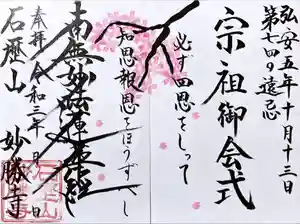 弘安五年十月十三日
第七四〇遠忌
宗祖御会式
必ず四恩をしって
知恩報恩をほうずべし
南無妙法蓮華経
奉拝 令和三年 月 日
石歴山 妙勝寺